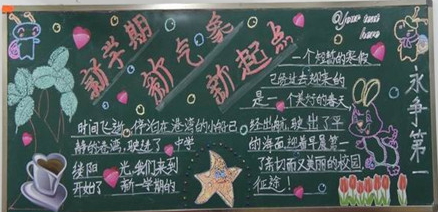 新学期
新气象
新起点
Your text
here
一个短暂的寒假
已经过去迎来的
是一个美好的春天
时间飞逝,停泊在港湾的小船已
经出航,驶出了平
静的港湾,驶进了
的海面,迎着早晨第一
缕阳光,我们来到
了亲切而又美丽的校园
开始了新一学期的
征途!
永争第一